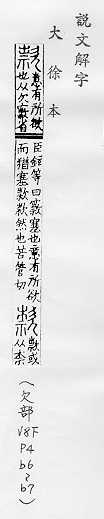 說文解字
大徐本
款
意有所欲
也从欠省
臣鉉等曰塞也意有所欲
而猶塞款款然也苦管切
款或
从柰
(欠部
V8F
P4
b6~b7)